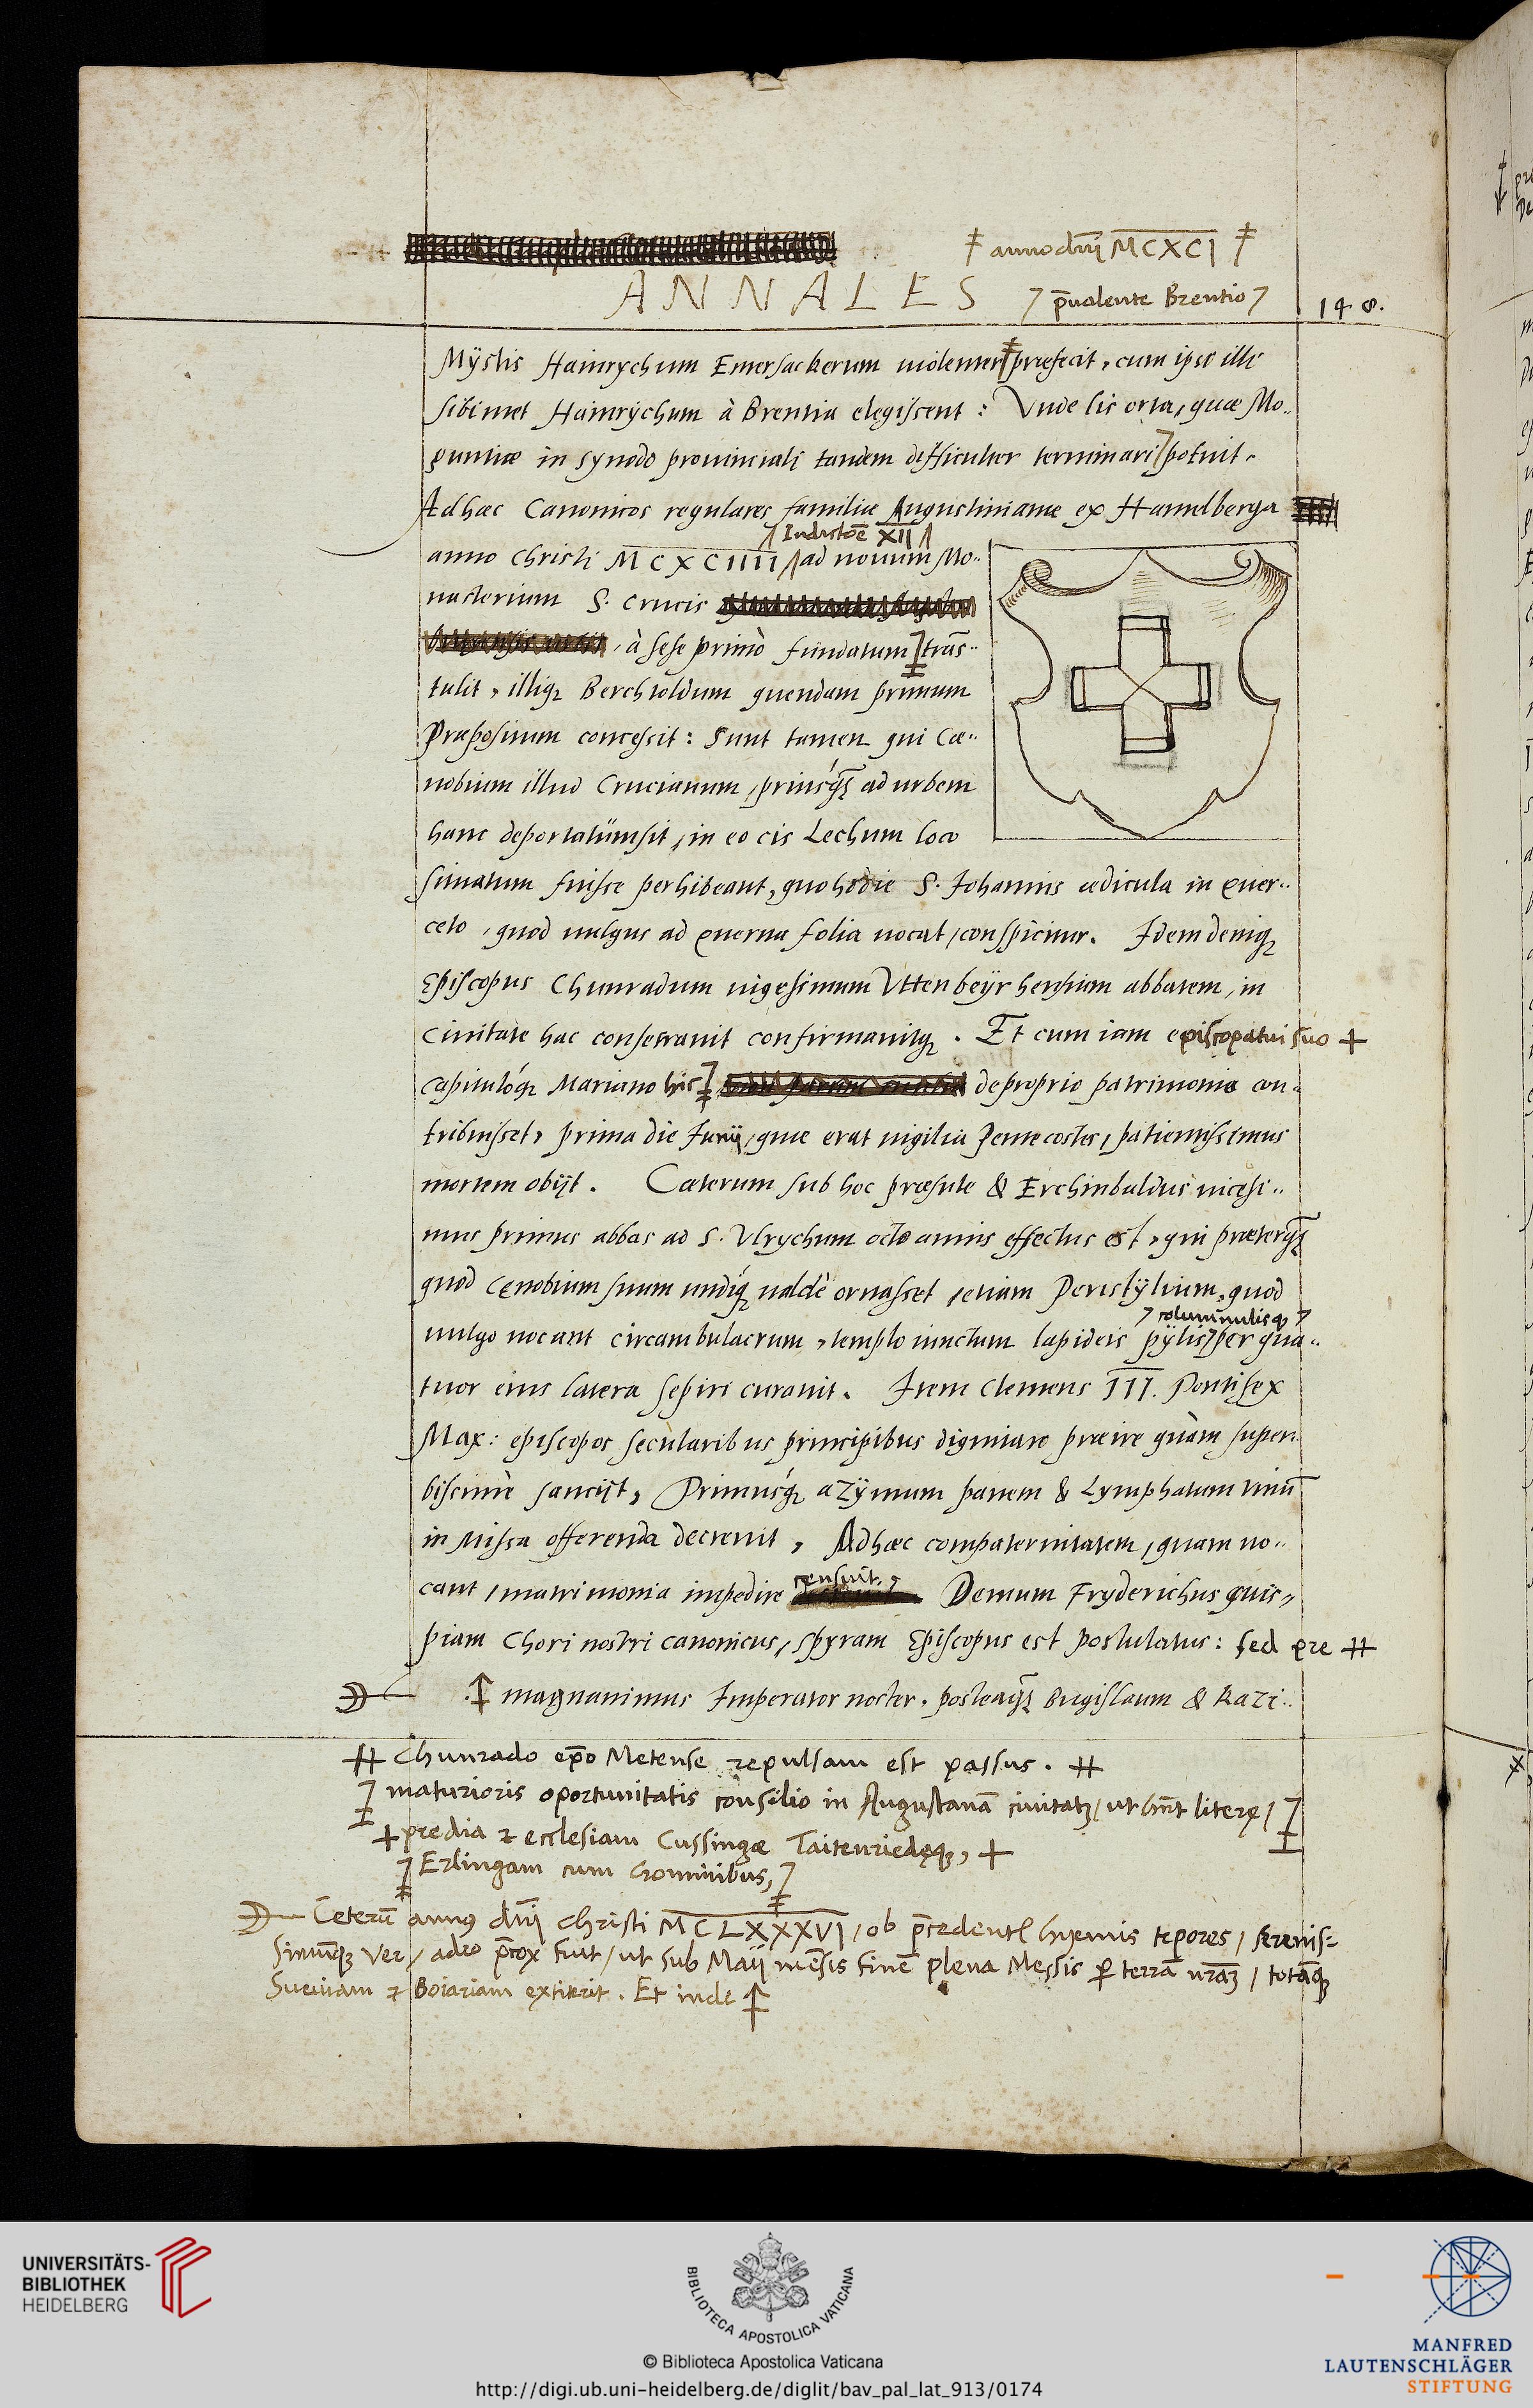 ‡ anno dnĩ MCXCI ‡
ANNALES
⁊ p̄ualente Brentio ⁊
148.
Mÿstis Hainrychum Emersackerum uiolenter ‡ præfecit, cum ipsi illi
sibimet Hainrychum à Brentia elegissent: Vnde lis orta, quæ Mo..
guntiæ in synodo prouinciali tandem difficulter terminari ⁊ potuit.
Adhæc Canonicos regulares familiæ Augustinianæ ex Hamelberga
Indictõe XII
anno Christi MCXCIIII ad nouum Mo..
nasterium S. Crucis
, à sese primò fundatum trãs..
tulit, illiqꝫ Berchtoldum quendam primum
Præpositum concessit: Sunt tamen qui Cœ..
nobium illud Crucianum, priusq́ꝫ ad urbem
hanc deportatũmsit, in eo cis Lechum loco
situatum fuisse perhibeant, quo hodie S. Johannis ædicula in quer..
ceto, quod uulgus ad querna folia uocat, conspicitur. Idem deniqꝫ
Episcopus Chunradum uigesimum Vttenbeÿrhensium abbatem, in
ciuitate hac consecrauit confirmauitqꝫ. Et cum iam episcopatui suo +
capitulóqꝫ Mariano his ‡ de proprio patrimonio con..
tribuisset, prima die Junij, quæ erat uigilia Pentecostes, patientissimus
mortem obijt. Cæterum sub hoc præsule & Erchinbaldus uicesi..
mus primus abbas ad S. Vlrychum octo annis effectus est, qui præterq̃ꝫ
quod cęnobium suum undiq́ꝫ ualdè ornasset, etiam Peristÿlium, quod
⁊ columnulisqꝫ ⁊
uulgo uocant circambulacrum, templo iunctum lapideis pÿlis ⁊ per qua..
tuor eius latera sepiri curauit. Item Clemens III. Pontifex
Max: episcopos secularibus principibus dignitate præire quàm super..
bissimè sancijt, Primusq́ꝫ azÿmum panem & Lymphatum uinũ
in Missa offerenda decreuit, Adhæc compaternitatem, quam uo..
cant, matrimonia impedire censuit. Demum Fryderichus quis,,
piam Chori nostri canonicus, Spyram Episcopus est postulatus: sed pre #
magnanimus Imperator noster. posteaq̃ꝫ Bugislaum & Kazi..
# Chunrado ep̃o Metense repulsam est passus. #
maturioris oportunitatis consilio in Augustanã ciuitatẽ, ut hñt literę,
+ predia ⁊ ecclesiam Cussingæ Taitenriedęqꝫ, +
Erlingam cum hominibus,
Ceterũ annꝰ dñi Christi MCLXXXVI, ob p̄cedentẽ hyemis tepores, serenis=
simũqꝫ Ver, adeo p̄cox fuit, ut sub Maij mẽsis finẽ plena Messis ꝑ terrã nr̃aꝫ, totãqꝫ
Sueuiam ⁊ Boiariam extiterit. Et inde
UNIVERSITÄTS-
BIBLIOTHEK
HEIDELBERG
BIBLIOTECA APOSTOLICA VATICANA
© Biblioteca Apostolica Vaticana
http://digi.ub.uni-heidelberg.de/diglit/bav_pal_lat_913/0174
MANFRED
LAUTENSCHLÄGER
STIFTUNG